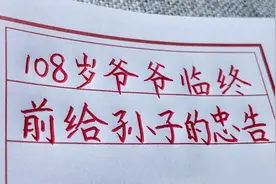 108岁爷爷临终
前给孙子的忠告